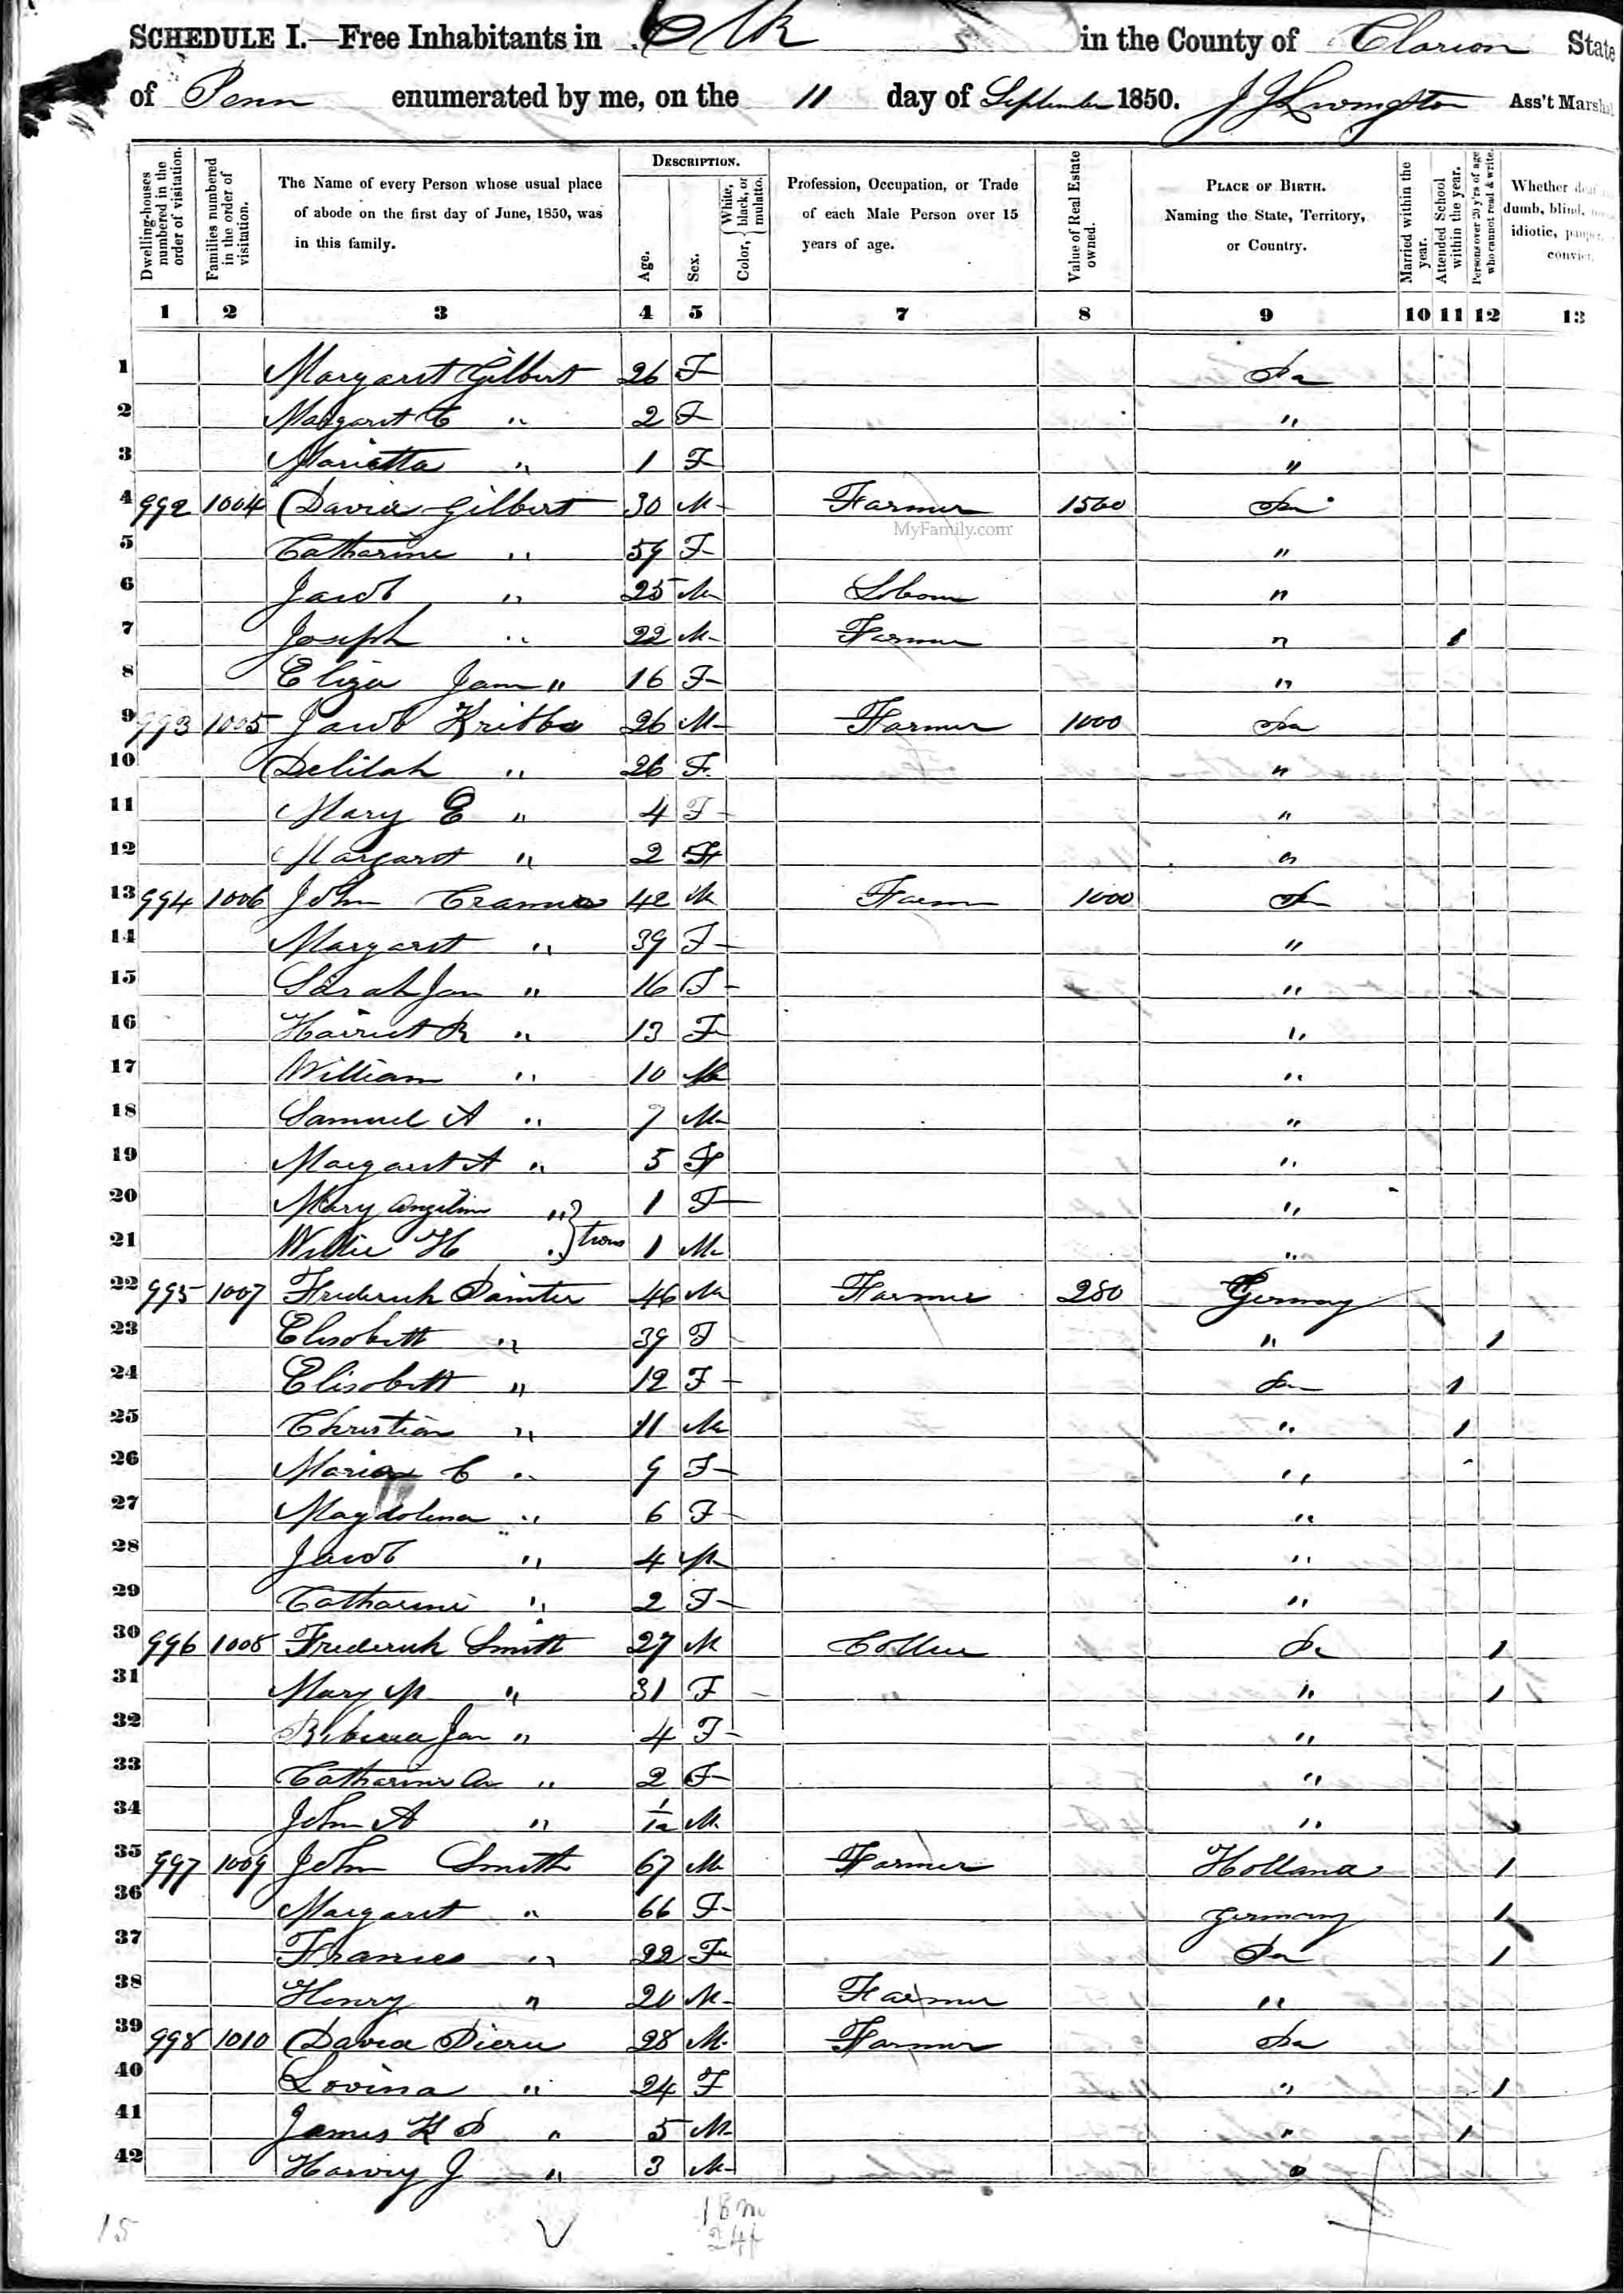 SCHEDULE I.—Free Inhabitants in Elk in the County of Clarion State
of Penn enumerated by me, on the 11 day of September 1850. J J Livingston Ass't Marshal
Dwelling-houses numbered in the order of visitation.
Families numbered in the order of visitation.
The Name of every Person whose usual place of abode on the first day of June, 1850, was in this family.
DESCRIPTION.
Age.
Sex.
Color, { White, black, or mulatto.
Profession, Occupation, or Trade of each Male Person over 15 years of age.
Value of Real Estate owned.
PLACE OF BIRTH. Naming the State, Territory, or Country.
Married within the year.
Attended School within the year.
Persons over 20 y'rs of age who cannot read & write.
Whether deaf dumb, blind, idiotic, pauper, convict.
1 2 3 4 5 7 8 9 10 11 12 13
1 Margaret Gilbert 26 F Pa
2 Margaret C " 2 F "
3 Marietta " 1 F "
4 992 1004 David Gilbert 30 M Farmer 1500 Pa
MyFamily.com
5 Catharine " 59 F "
6 Jacob " 25 M "
7 Joseph " 22 M Farmer " 1
8 Eliza Jane " 16 F "
9 993 1005 Jacob 26 M Farmer 1000 Pa
10 Delilah " 26 F "
11 Mary E " 4 F "
12 Margaret " 2 F "
13 994 1006 John 42 M Farmer 1000 Pa
14 Margaret " 39 F "
15 Sarah Jan " 16 F "
16 Harriet R " 13 F "
17 William " 10 M "
18 Samuel A " 7 M "
19 Margaret A " 5 F "
20 Mary Angeline " 1 F "
21 Willie H " } 1 M "
22 995 1007 Frederick Painter 46 M Farmer 280 Germany
23 Elisabeth " 39 F " 1
24 Elisabeth " 12 F Pa 1
25 Christian " 11 M " 1
26 Maria C " 9 F "
27 Magdolena " 6 F "
28 Jacob " 4 M "
29 Catharine " 2 F "
30 996 1008 Frederick Smith 27 M Collier Pa 1
31 Mary M " 31 F " 1
32 Rebecca Jan " 4 F "
33 Catharine A " 2 F "
34 John A " 1/12 M "
35 997 1009 John Smith 67 M Farmer Holland 1
36 Margaret " 66 F Germany 1
37 Frances " 22 F Pa 1
38 Henry " 20 M Farmer "
39 998 1010 David 28 M Farmer Pa
40 Lovina " 24 F " 1
41 James K P " 5 M " 1
42 Harvey J " 3 M "
15
18 m
24 f